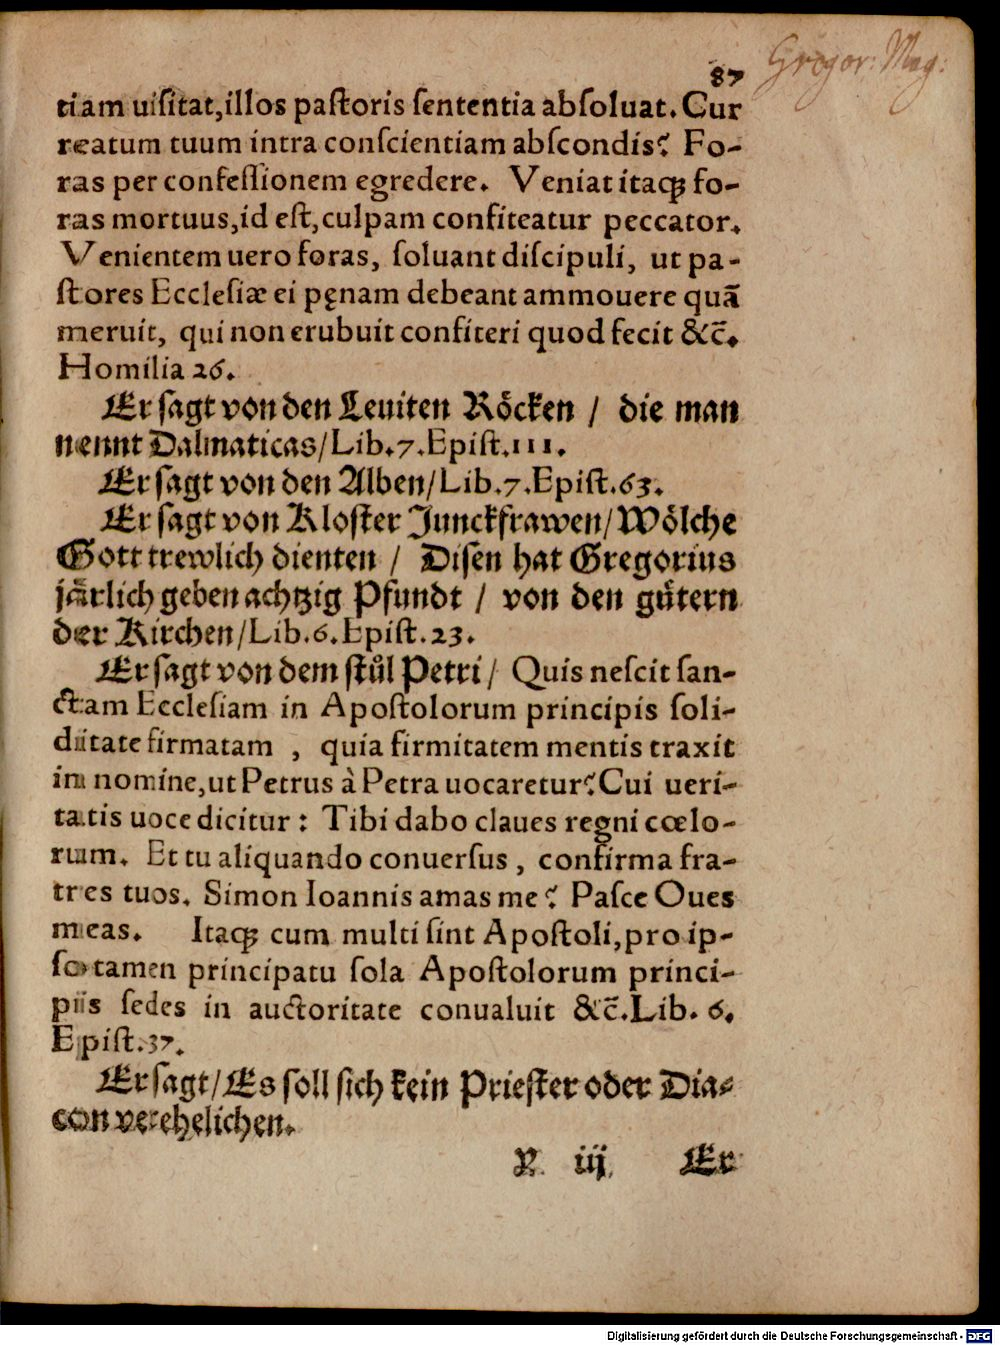 Gregor: Mag:
87
tiam uisitat,illos pastoris sententia absoluat. Cur
reatum tuum intra conscientiam abscondis? Fo-
ras per confessionem egredere. Veniat itaqꝫ fo-
ras mortuus,id est,culpam confiteatur peccator.
Venientem uero foras, soluant discipuli, ut pa-
stores Ecclesiæ ei pęnam debeant ammouere quã
meruit, qui non erubuit confiteri quod fecit &c̃.
Homilia 26.
Er sagt von den Leuiten Röcken / die man
nennt Dalmaticas/Lib.7.Epist.111.
Er sagt von den Alben/Lib.7.Epist.63.
Er sagt von Kloster Junckfrawen/Wölche
Gott trewlich dienten / Disen hat Gregorius
järlich geben achtzig Pfundt / von den gütern
der Kirchen/Lib.6.Epist.23.
Er sagt von dem stůl Petri/ Quis nescit san-
ctam Ecclesiam in Apostolorum principis soli-
ditate firmatam , quia firmitatem mentis traxit
in nomine,ut Petrus à Petra uocaretur? Cui ueri-
tatis uoce dicitur : Tibi dabo claues regni cœlo-
rum. Et tu aliquando conuersus , confirma fra-
tres tuos. Simon Ioannis amas me ? Pasce Oues
meas. Itaqꝫ cum multi sint Apostoli,pro ip-
so tamen principatu sola Apostolorum princi-
piis sedes in auctoritate conualuit &c̃.Lib. 6.
Epist.37.
Er sagt/Es soll sich kein Priester oder Dia-
con verehelichen.
Y iij Er
Digitalisierung gefördert durch die Deutsche Forschungsgemeinschaft - DFG